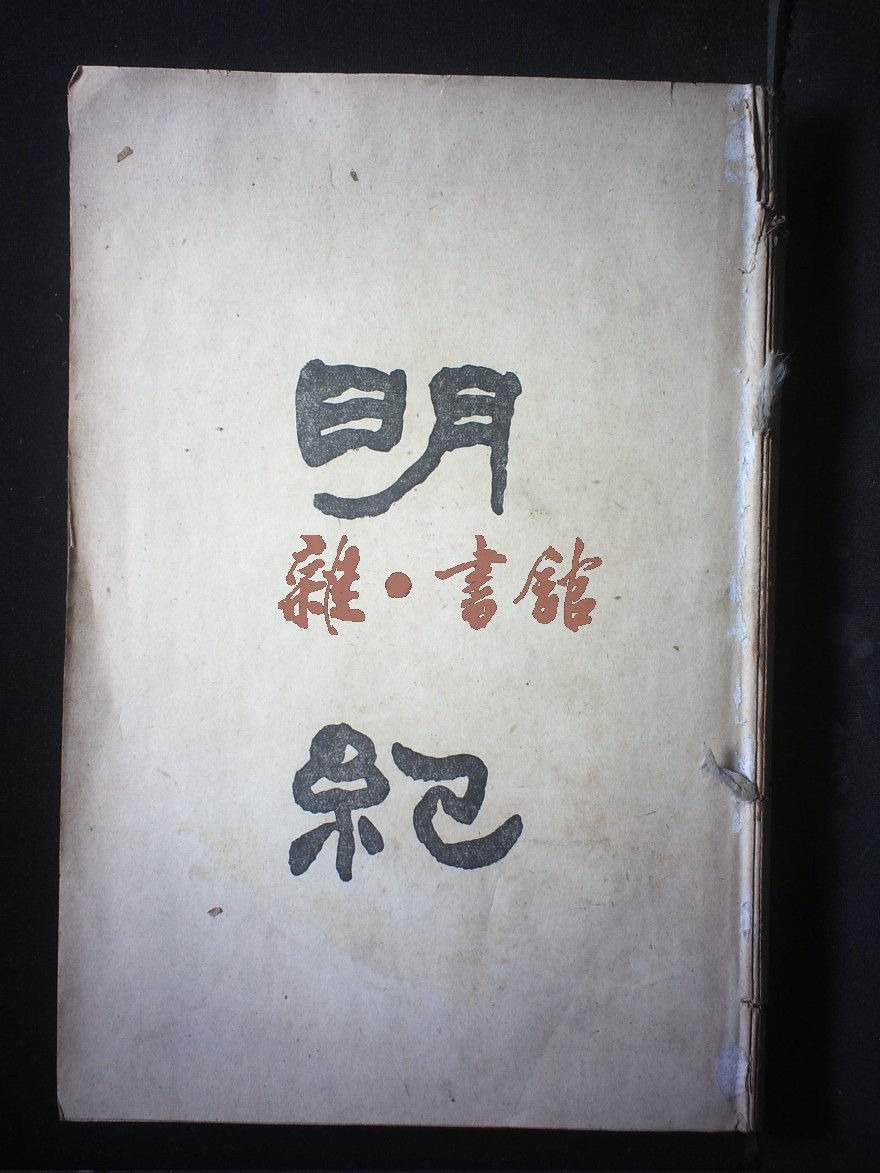 明
雜·書館
紀